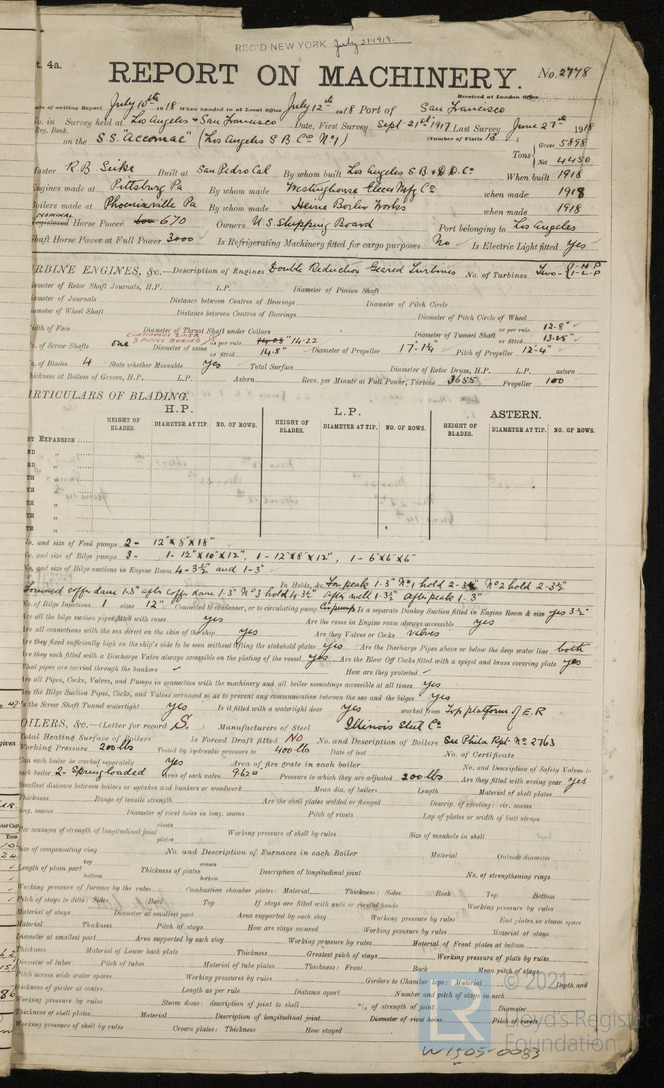 REC'D NEW YORK July 31 1918
t. 4a.
REPORT ON MACHINERY.
No. 2778
Received at London Office
ate of writing Report July 10th 1918 When handed in at Local Office July 12th 1918 Port of San Francisco
No. in Survey held at Los Angeles & San Francisco Date, First Survey Sept 21st 1917 Last Survey June 27th 1918
Reg. Book. (Number of Visits 13
on the S.S. "Accomac" (Los Angeles S B Co No 1)
Tons Gross 5898
Net 4450
Master R B Built at San Pedro Cal By whom built Los Angeles S B & D. D. Co When built 1918
Engines made at Pittsburg Pa By whom made Westinghouse Elec & Mfg Co when made 1918
Boilers made at Phoenixville Pa By whom made Heine Boiler Works when made 1918
NOMINAL
Registered Horse Power 670 Owners U.S. Shipping Board Port belonging to Los Angeles
Shaft Horse Power at Full Power 3000 Is Refrigerating Machinery fitted for cargo purposes No Is Electric Light fitted yes
TURBINE ENGINES, &c.—Description of Engines Double Reduction Geared Turbines No. of Turbines Two- 1-H-P 1-L-P
Diameter of Rotor Shaft Journals, H.P. L.P. Diameter of Pinion Shaft
Diameter of Journals Distance between Centres of Bearings Diameter of Pitch Circle
Diameter of Wheel Shaft Distance between Centres of Bearings Diameter of Pitch Circle of Wheel
Width of Face Diameter of Thrust Shaft under Collars Diameter of Tunnel Shaft as per rule 12.8" as fitted 13.25"
CONTINUOUS LINER
3 PIECES BURNED
No. of Screw Shafts one Diameter of same as per rule 14.22 as fitted 14.5" Diameter of Propeller 17'-1¼" Pitch of Propeller 12'-4"
No. of Blades 4 State whether Moveable yes Total Surface Diameter of Rotor Drum, H.P. L.P. astern
Thickness at Bottom of Groove, H.P. L.P. Astern Revs. per Minute at Full Power, Turbine 3655 Propeller 100
PARTICULARS OF BLADING.
H.P. L.P. ASTERN.
HEIGHT OF BLADES. DIAMETER AT TIP. NO. OF ROWS. HEIGHT OF BLADES. DIAMETER AT TIP. NO. OF ROWS. HEIGHT OF BLADES. DIAMETER AT TIP. NO. OF ROWS.
ST EXPANSION
ND "
RD "
TH "
TH "
TH "
TH "
TH "
No. and size of Feed pumps 2- 12" x 8" x 18"
No. and size of Bilge pumps 3- 1- 12" x 10" x 12", 1- 12" x 8" x 12", 1- 6" x 6" x 6"
No. and size of Bilge suctions in Engine Room 4- 3½" and 1-3"
In Holds, &c. For peak 1-3" No 1 hold 2-3½" No 2 hold 2-3½"
Forward coffr dam 1-3" aftr coffr dam 1-3" No 3 hold 4-3½" After well 1-3½" aft peak 1-3"
No. of Bilge Injections 1 sizes 12" Connected to condenser, or to circulating pump Cir pump Is a separate Donkey Suction fitted in Engine Room & size yes 3½"
Are all the bilge suction pipes fitted with roses yes Are the roses in Engine room always accessible yes
Are all connections with the sea direct on the skin of the ship yes Are they Valves or Cocks valves
Are they fixed sufficiently high on the ship's side to be seen without lifting the stokehold plates yes Are the Discharge Pipes above or below the deep water line both
Are they each fitted with a Discharge Valve always accessible on the plating of the vessel yes Are the Blow Off Cocks fitted with a spigot and brass covering plate yes
What pipes are carried through the bunkers How are they protected
Are all Pipes, Cocks, Valves, and Pumps in connection with the machinery and all boiler mountings accessible at all times yes
Are the Bilge Suction Pipes, Cocks, and Valves arranged so as to prevent any communication between the sea and the bilges yes
Is the Screw Shaft Tunnel watertight yes Is it fitted with a watertight door yes worked from Top platform of E.R
BOILERS, &c.—(Letter for record S.) Manufacturers of Steel Illinois Steel Co
Total Heating Surface of Boilers Is Forced Draft fitted NO No. and Description of Boilers See Phila Rpt- No 2763
Working Pressure 200 lbs Tested by hydraulic pressure to 400 lbs Date of test No. of Certificate
Can each boiler be worked separately yes Area of fire grate in each boiler No. and Description of Safety Valves to
each boiler 2- Spring loaded Area of each valve 9.62" Pressure to which they are adjusted 200 lbs Are they fitted with easing gear yes
Smallest distance between boilers or uptakes and bunkers or woodwork Mean dia. of boilers Length Material of shell plates
Thickness Range of tensile strength Are the shell plates welded or flanged Descrip. of riveting: cir. seams
long. seams Diameter of rivet holes in long. seams Pitch of rivets Lap of plates or width of butt straps
Per centages of strength of longitudinal joint rivets plates Working pressure of shell by rules Size of manhole in shell
Size of compensating ring No. and Description of Furnaces in each Boiler Material Outside diameter
Length of plain part top bottom Thickness of plates crown bottom Description of longitudinal joint No. of strengthening rings
Working pressure of furnace by the rules Combustion chamber plates: Material Thickness: Sides Back Top Bottom
Pitch of stays to ditto: Sides Back Top If stays are fitted with nuts or riveted heads Working pressure by rules
Material of stays Diameter at smallest part Area supported by each stay Working pressure by rules End plates in steam space
Material Thickness Pitch of stays How are stays secured Working pressure by rules Material of stays
Diameter at smallest part Area supported by each stay Working pressure by rules Material of Front plates at bottom
Thickness Material of Lower back plate Thickness Greatest pitch of stays Working pressure of plate by rules
Diameter of tubes Pitch of tubes Material of tube plates Thickness: Front Back Mean pitch of stays
Pitch across wide water spaces Working pressures by rules Girders to Chamber tops: Material Depth and
thickness of girder at centre Length as per rule Distance apart Number and pitch of stays in each
Working pressure by rules Steam dome: description of joint to shell % of strength of joint Diameter
Thickness of shell plates Material Description of longitudinal joint Diameter of rivet holes Pitch of rivets
Working pressure of shell by rules Crown plates: Thickness How stayed
© 2021
Lloyd's Register
Foundation
W1505-0083